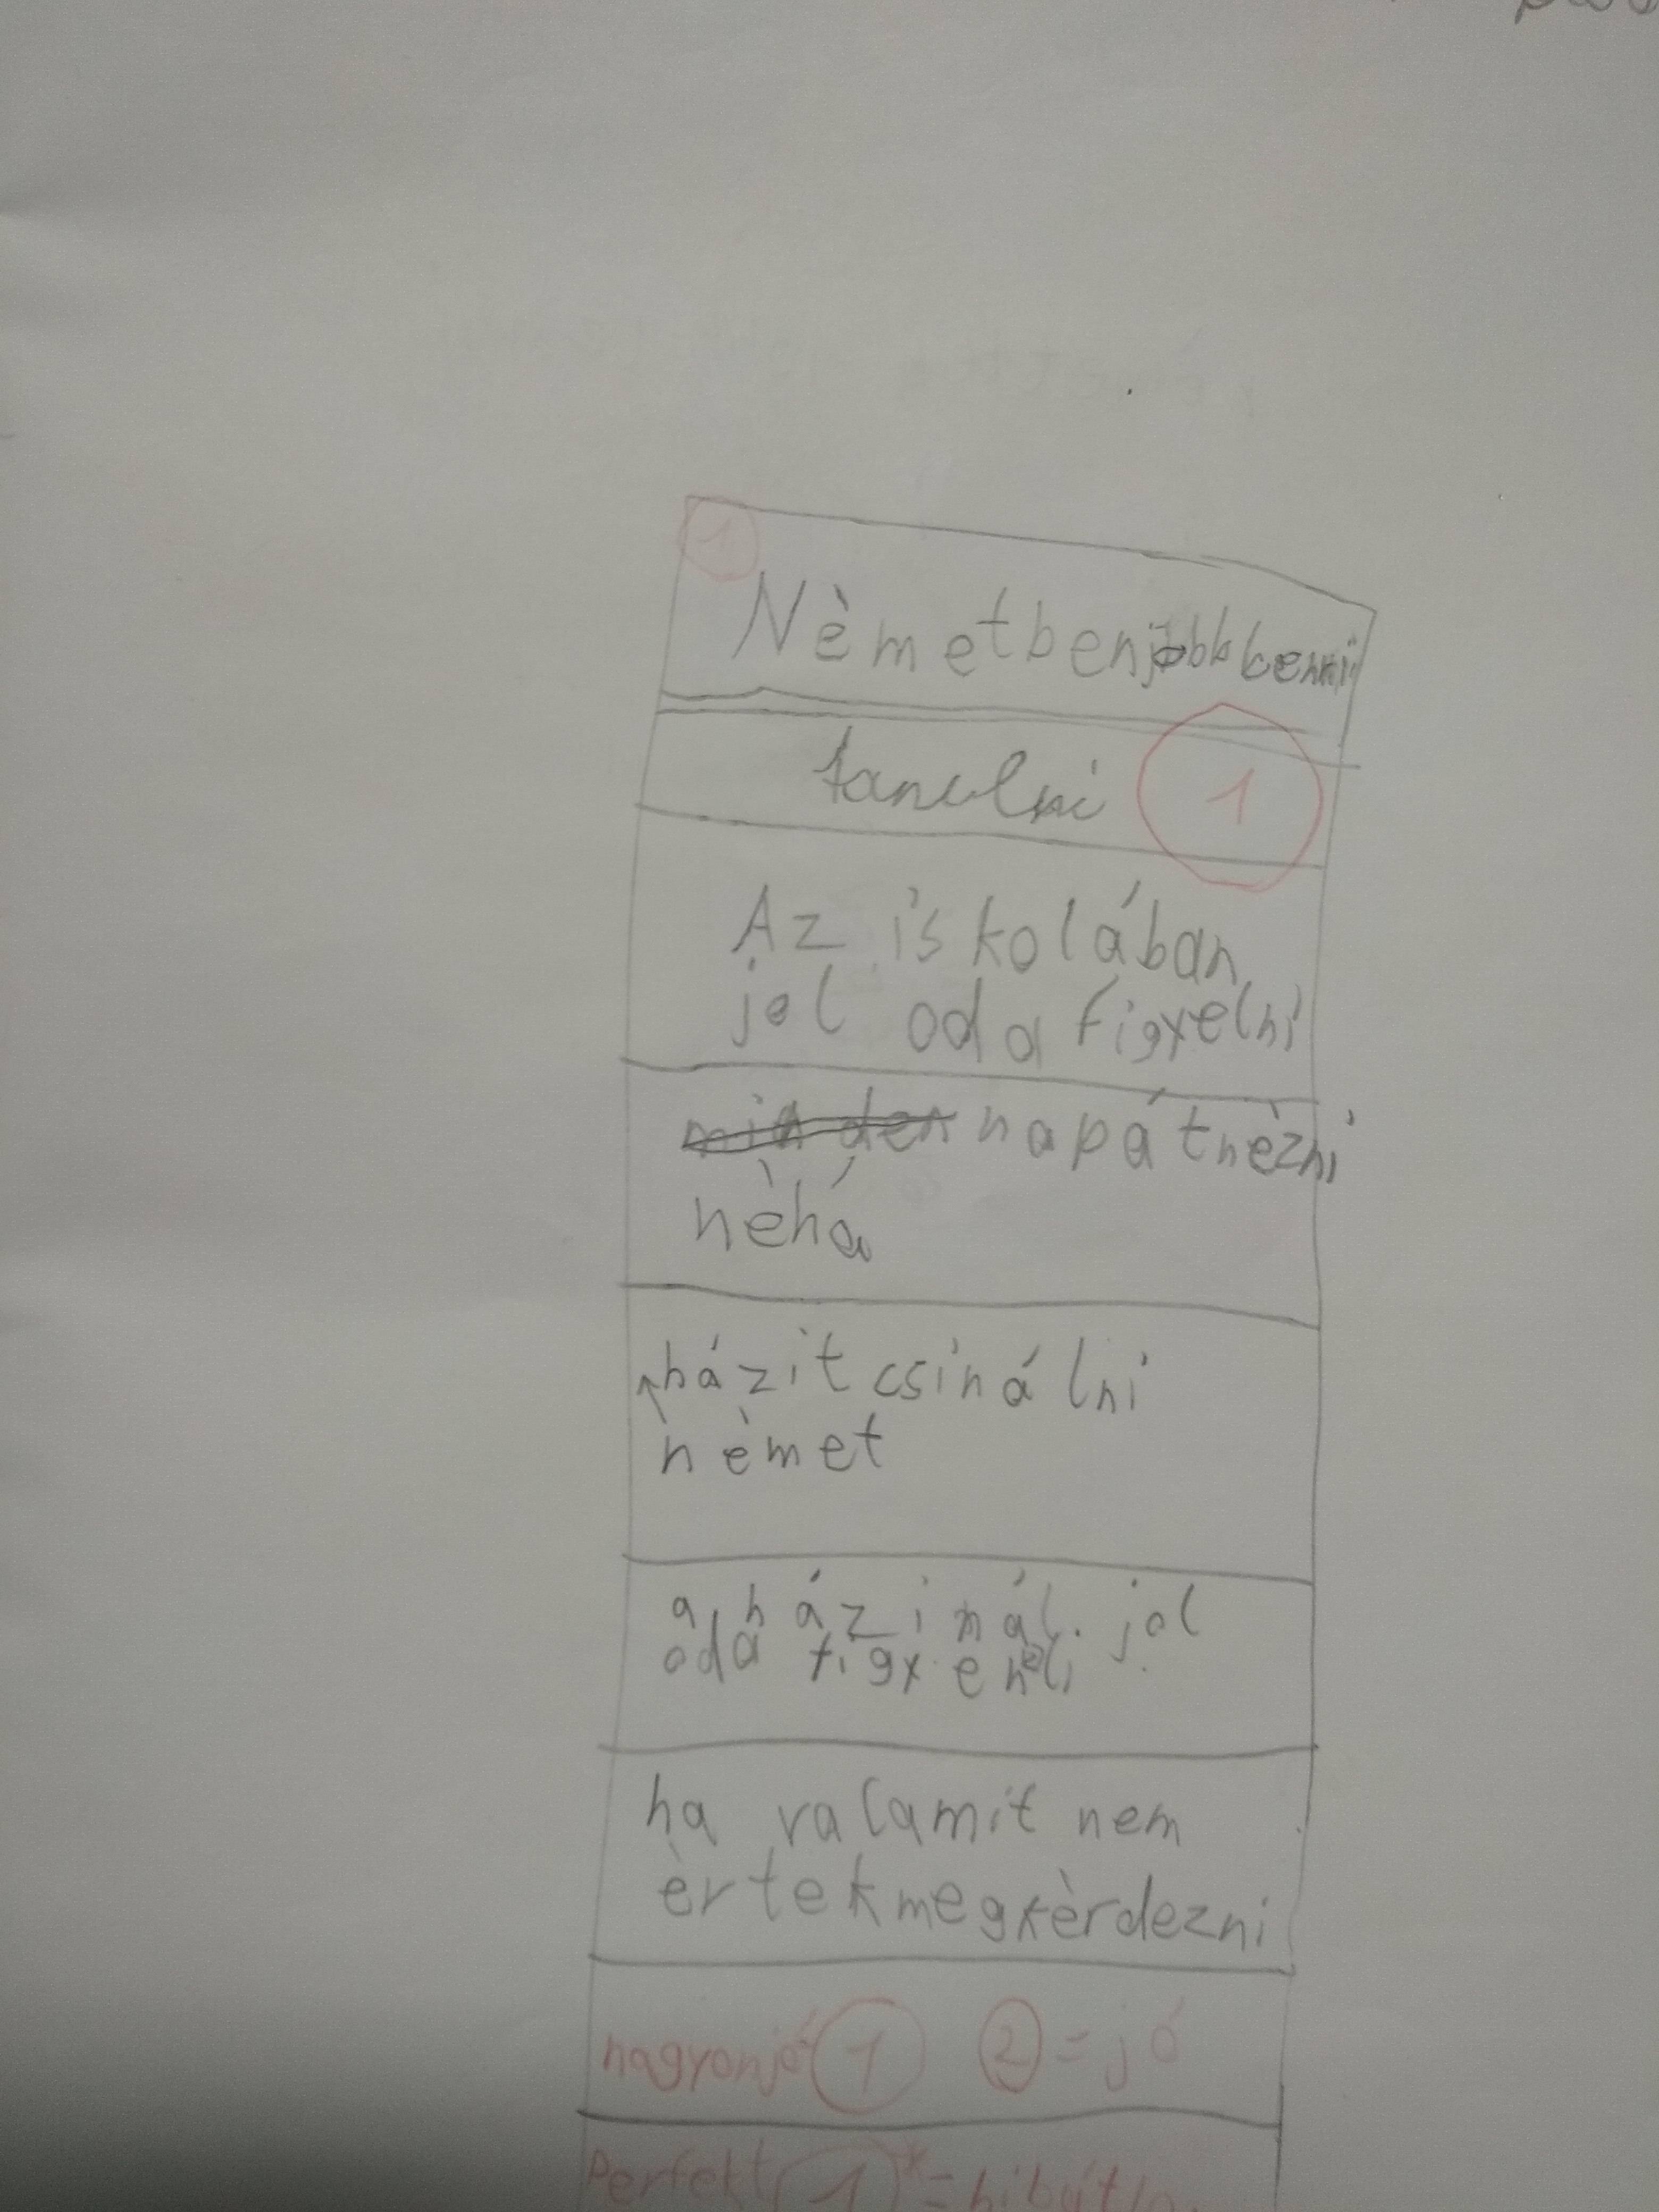 1
Nèmetben jobb lenni
tanulni 1
Az iskolában
jol oda figyelni
minden nap átnèzni
nèhá
házit csinálni
nèmet
a házinál jol
oda figyelni
ha valamit nem
èrtek megkèrdezni
nagyon jó 1 2 = jó
Perfekt 1* =